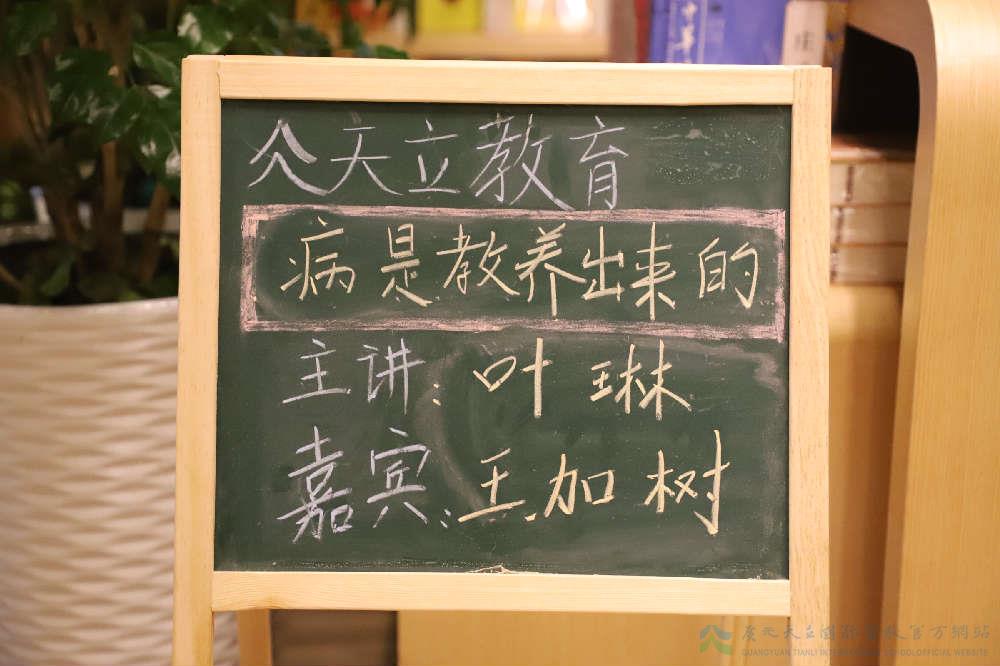 天立教育
病是教养出来的
主讲:叶琳
嘉宾:王加树
广元天立国际学校官方網站
GUANGYUAN TIANLI INTERNATIONAL SCHOOL OFFICIAL WEBSITE